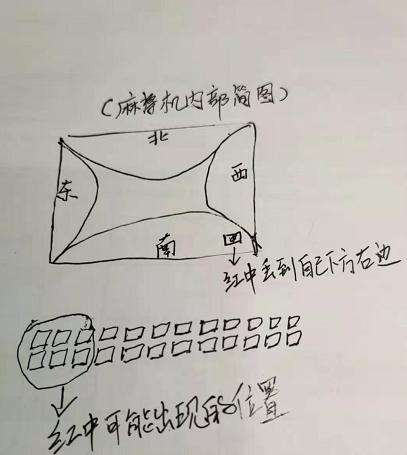 (麻将机内部简图)
北
东
西
南
红中丢到自己下方右边
红中可能出现的位置